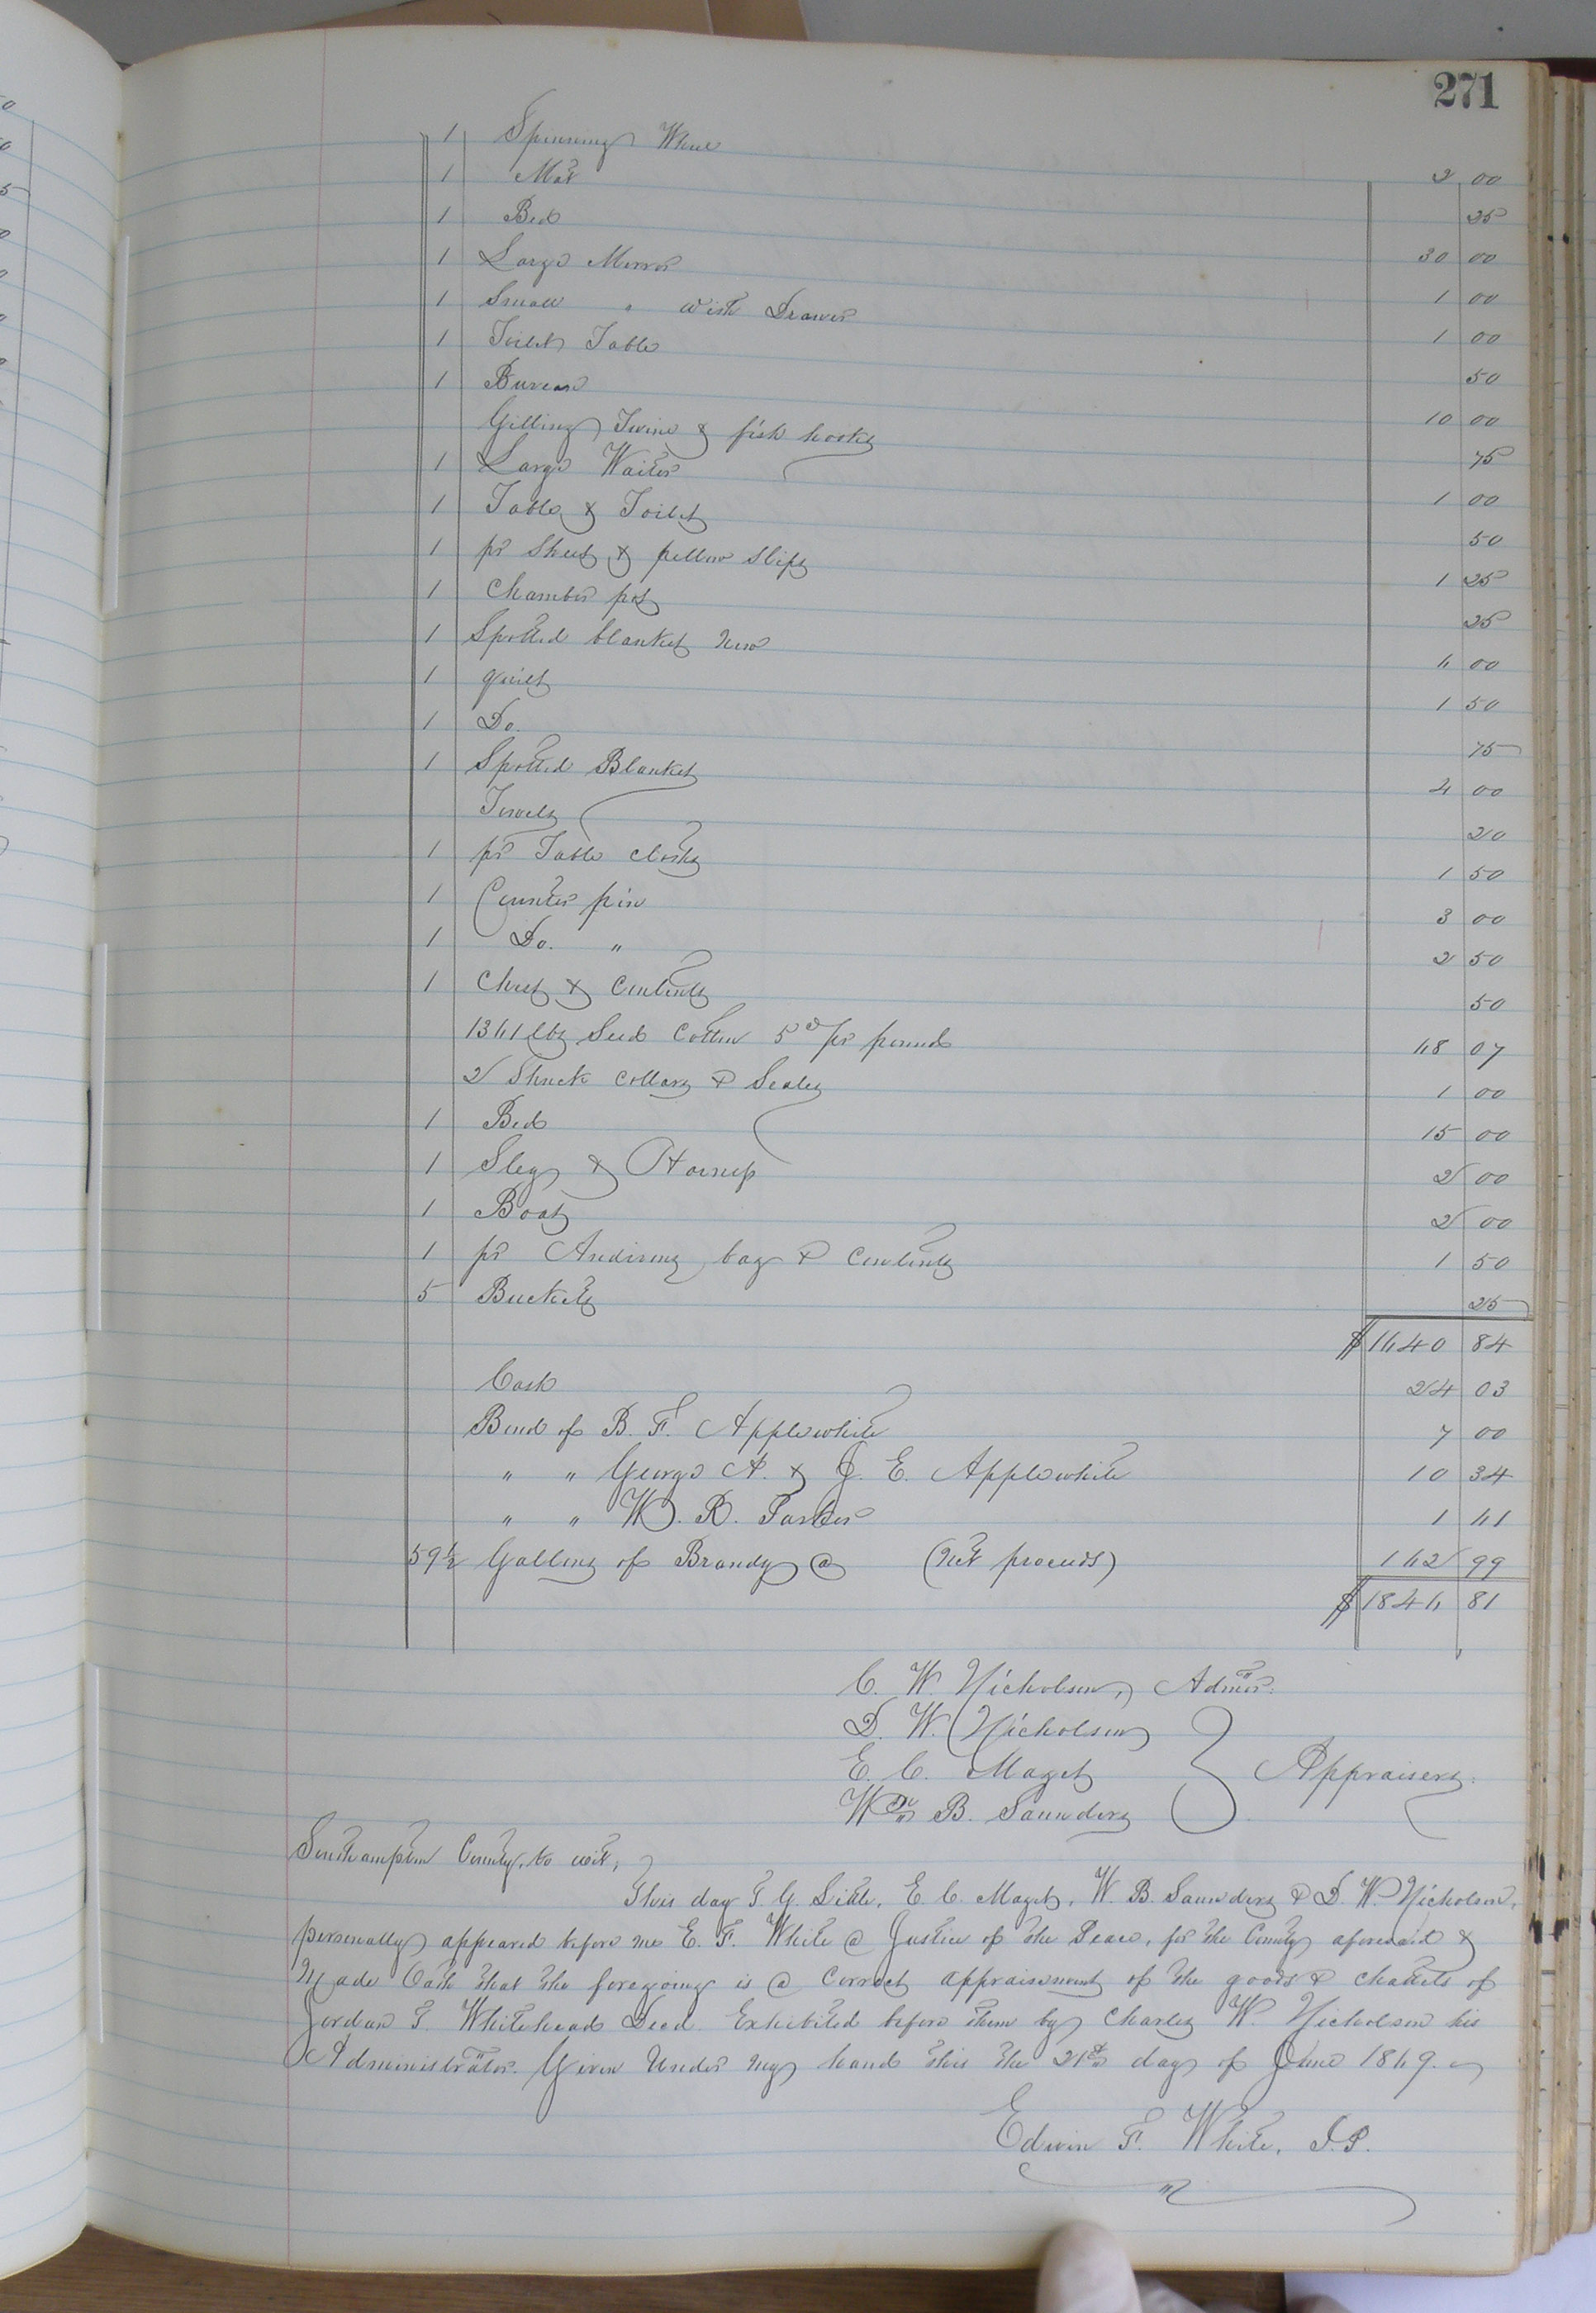 271
1 Spinning Wheel 2 00
1 Mat 25
1 Bed 30 00
1 Large Mirror 1 00
1 Small " with Drawer 1 00
1 Toilet Table 50
1 Bureau 10 00
Gilling Twine & fish hooks 75
1 Large Waiter 1 00
1 Table & Toilet 50
1 pr Sheets & pillow Slips 1 25
1 Chamber pot 25
1 Spotted blanket New 6 00
1 quilt 1 50
1 Do. 75
1 Spotted Blanket 4 00
Towels 20
1 pr Table cloths 1 50
1 Counter pin 3 00
1 Do. " 2 50
1 Chest & Contents 50
1361 lbs Seed Cotton 5c pr pound 68 07
2 Shuck Collars & Scales 1 00
1 Bed 15 00
1 Sley & Harness 2 00
1 Boat 2 00
1 pr Andirons bag & Contents 1 50
5 Buckets 25
$1640 84
Cash 24 03
Bond of B. F. Applewhite 7 00
" " George A. & J. E. Applewhite 10 34
" " W. R. Parker 1 61
59½ Gallons of Brandy @ (Net proceeds) 162 99
$1846 81
C. W. Nicholson, Admor.
D. W. Nicholson
E. C. Maget } Appraisers.
Wm B. Saunders
Southampton County, to wit,
This day T. G. Little, E. C. Maget, W. B. Saunders & D. W. Nicholson,
personally appeared before me E. F. White a Justice of the Peace, for the County aforesaid &
Made Oath that the foregoing is a Correct appraisement of the goods & chattels of
Jordan T. Whitehead Decd. Exhibited before them by Charles W. Nicholson his
Administrator. Given Under my hand this the 21st day of June 1869.
Edwin F. White, J.P.